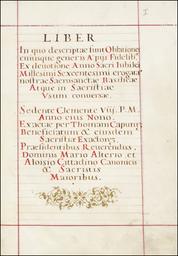 LIBER
In quo descriptae sunt Oblationes
cuiusque generis A' pijs Fidelib'
Ex deuotione Anno Sacri Iubilei
Millesimi Sexcentesimi erogatae
nostrae Sacrosanctae Basilicae
Atque in Sacristiae
Vsum conuersae.
Sedente Clemente Viij. P. M.
Anno eius Nono.
Exactae per Thomam Capuny
Beneficiatum & eiusdem
Sacristiae Exactorem,
Praesidentibus Reuerendis,
Dominis Mario Alterio et
Aloisio Cittadino Canonicis
& Sacristis
Maioribus.